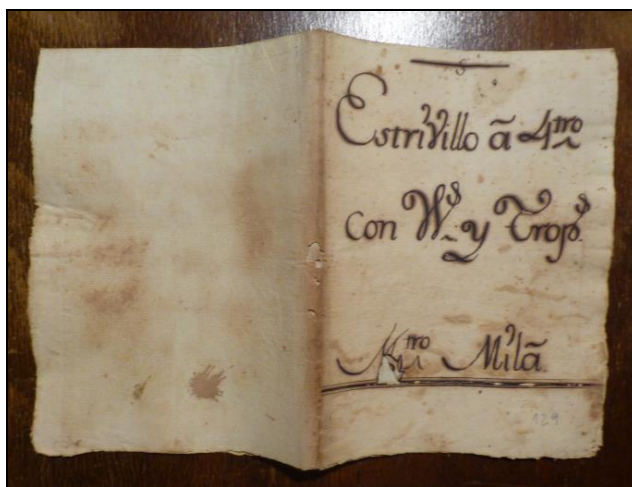 Estrivillo ã 4tro
Con Ws y Trops
Mtro Milã
129